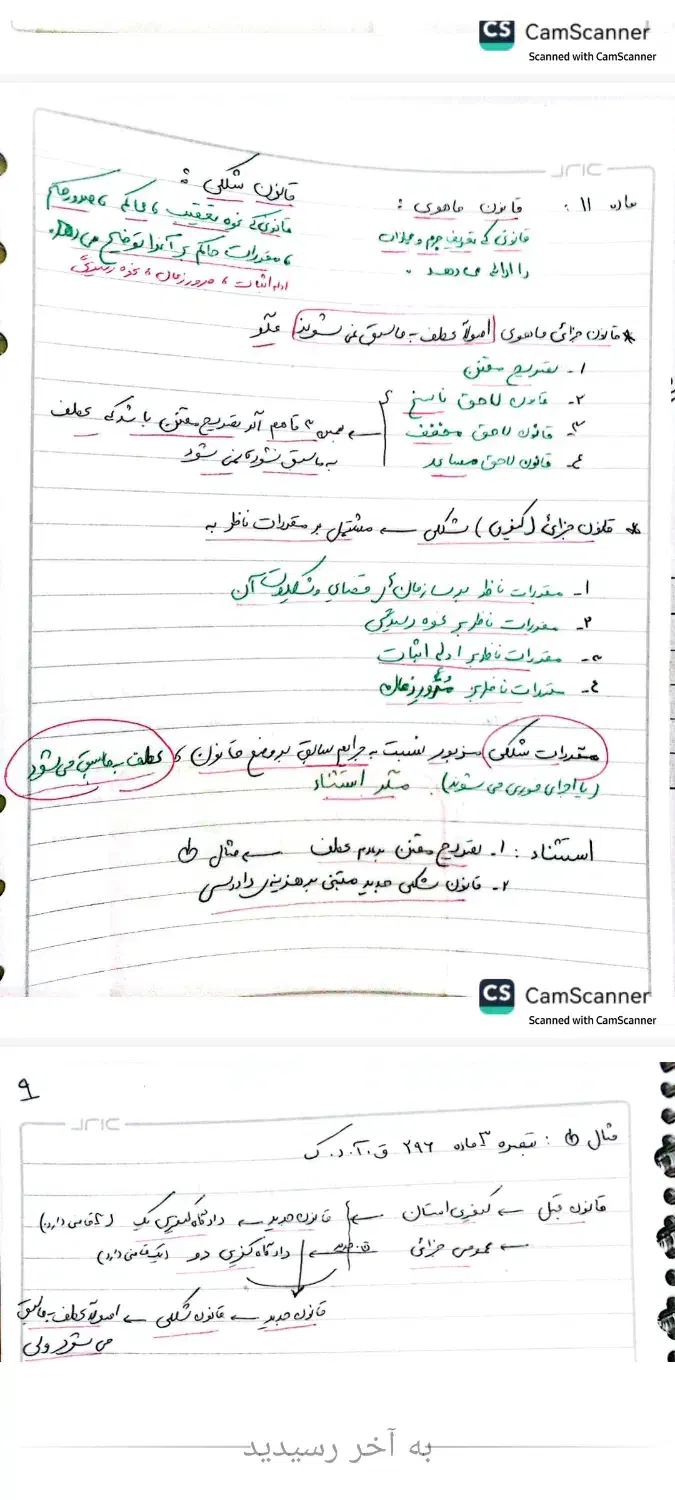 CS CamScanner
Scanned with CamScanner
ماده ۱۱ : قانون ماهوی :
قانونی که تعریف جرم و مجازات
را ارائه می دهد .
قانون شکلی :
قانونی که نحوه تعقیب، محاکمه، صدور حکم
، مقررات حاکم بر آنرا توضیح می دهد.
ادله اثبات ، مرور زمان ، نحوه رسیدگی
* قانون جزائی ماهوی اصولاً عطف به ماسبق نمی شوند مگر
۱- تصریح مقنن
۲- قانون لاحق ناسخ
۳- قانون لاحق مخفف
۴- قانون لاحق مساعد
همین ۳ تا هم اگر تصریح مقنن باشد که عطف
به ماسبق نشود نمی شود
* قانون جزائی (کیفری) شکلی ← مشتمل بر مقررات ناظر به
۱- مقررات ناظر بر سازمان قضایی و تشکیلات آن
۲- مقررات ناظر بر نحوه رسیدگی
۳- مقررات ناظر بر ادله اثبات
۴- مقررات ناظر بر مرور زمان
مقررات شکلی مزبور نسبت به جرایم سابق بر وضع قانون ، عطف به ماسبق می شود
(یا اجرای فوری می شوند). مگر استثناء
استثناء : ۱- تصریح مقنن بر عدم عطف ← مثال
۲- قانون شکلی جدید مبتنی بر هزینه ی دادرسی
CS CamScanner
Scanned with CamScanner
۹
مثال : تبصره ۳ ماده ۲۹۶ ق.آ.د.ک
قانون قبل ← کیفری استان ← قانون جدید ← دادگاه کیفری یک
← عمومی جزائی ← دادگاه کیفری دو
قانون جدید ← قانون شکلی ← اصولاً عطف به ماسبق
می شود ولی
به آخر رسیدید